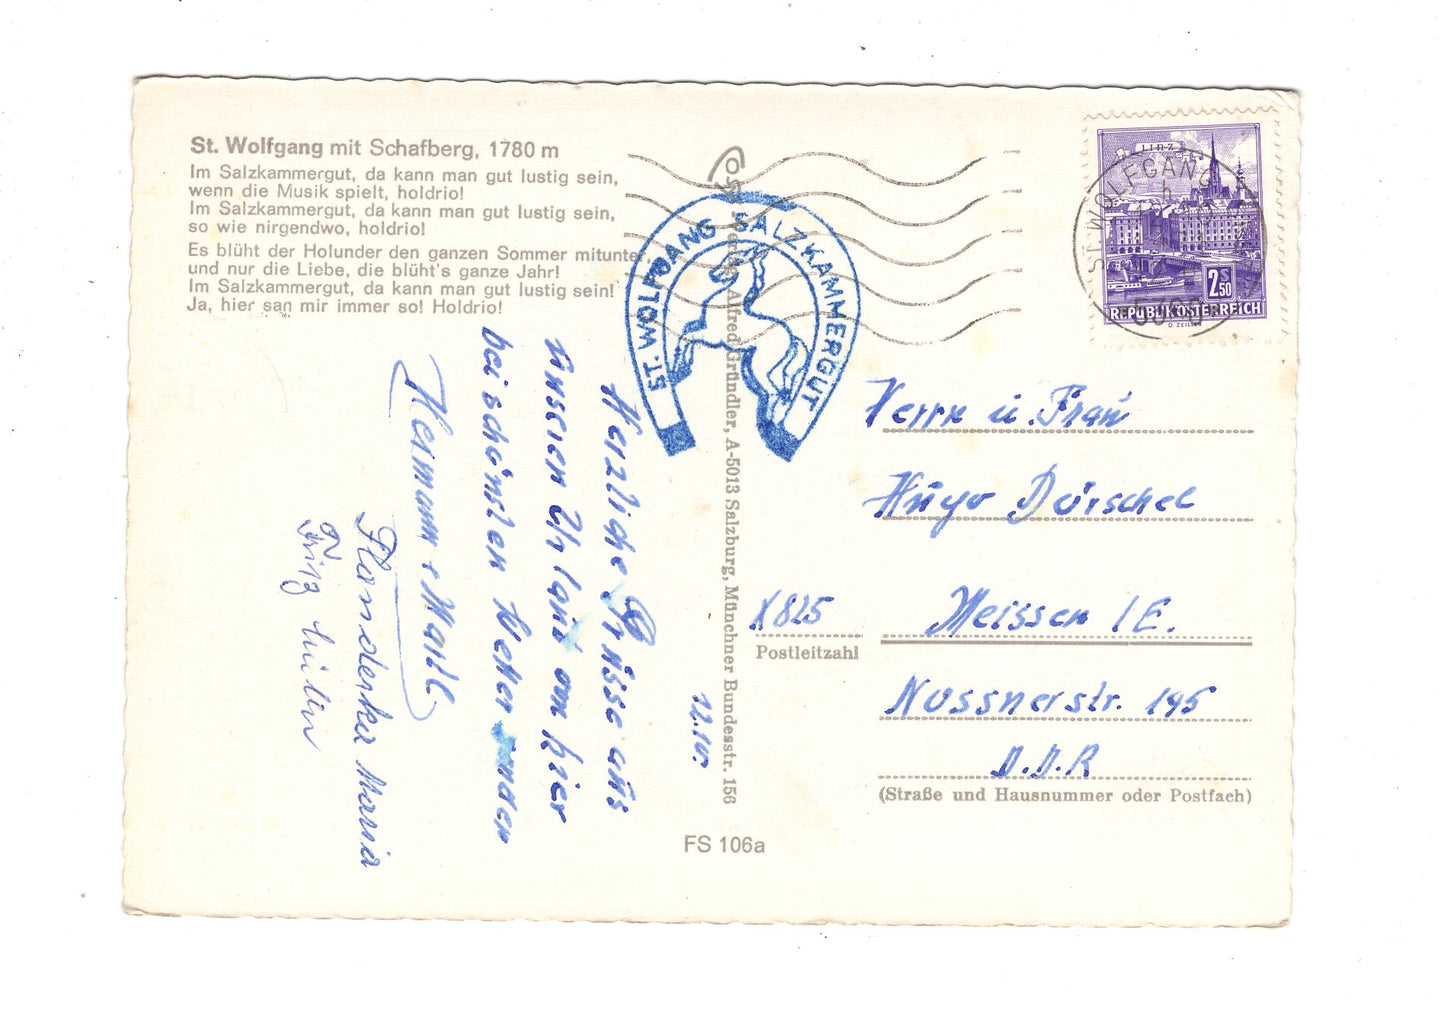 St. Wolfgang mit Schafberg, 1780 m
Im Salzkammergut, da kann man gut lustig sein,
wenn die Musik spielt, holdrio!
Im Salzkammergut, da kann man gut lustig sein,
so wie nirgendwo, holdrio!
Es blüht der Holunder den ganzen Sommer mitunter
und nur die Liebe, die blüht's ganze Jahr!
Im Salzkammergut, da kann man gut lustig sein!
Ja, hier san mir immer so! Holdrio!
ST. WOLFGANG SALZKAMMERGUT
Verlag Alfred Gründler, A-5013 Salzburg, Münchner Bundesstr. 156
LINZ
2 S 50
REPUBLIK ÖSTERREICH
O. ZEILLER
ST. WOLFGANG
12.10.
Herzliche Grüsse aus
unseren Urlaub von hier
bei schönsten Wetter senden
Hermann + Marile
Flanderka Maria
Fritz
Herrn u. Frau
Hugo Dörschel
X825
Meissen 1E.
Postleitzahl
Nossnerstr. 195
D.D.R
(Straße und Hausnummer oder Postfach)
FS 106a